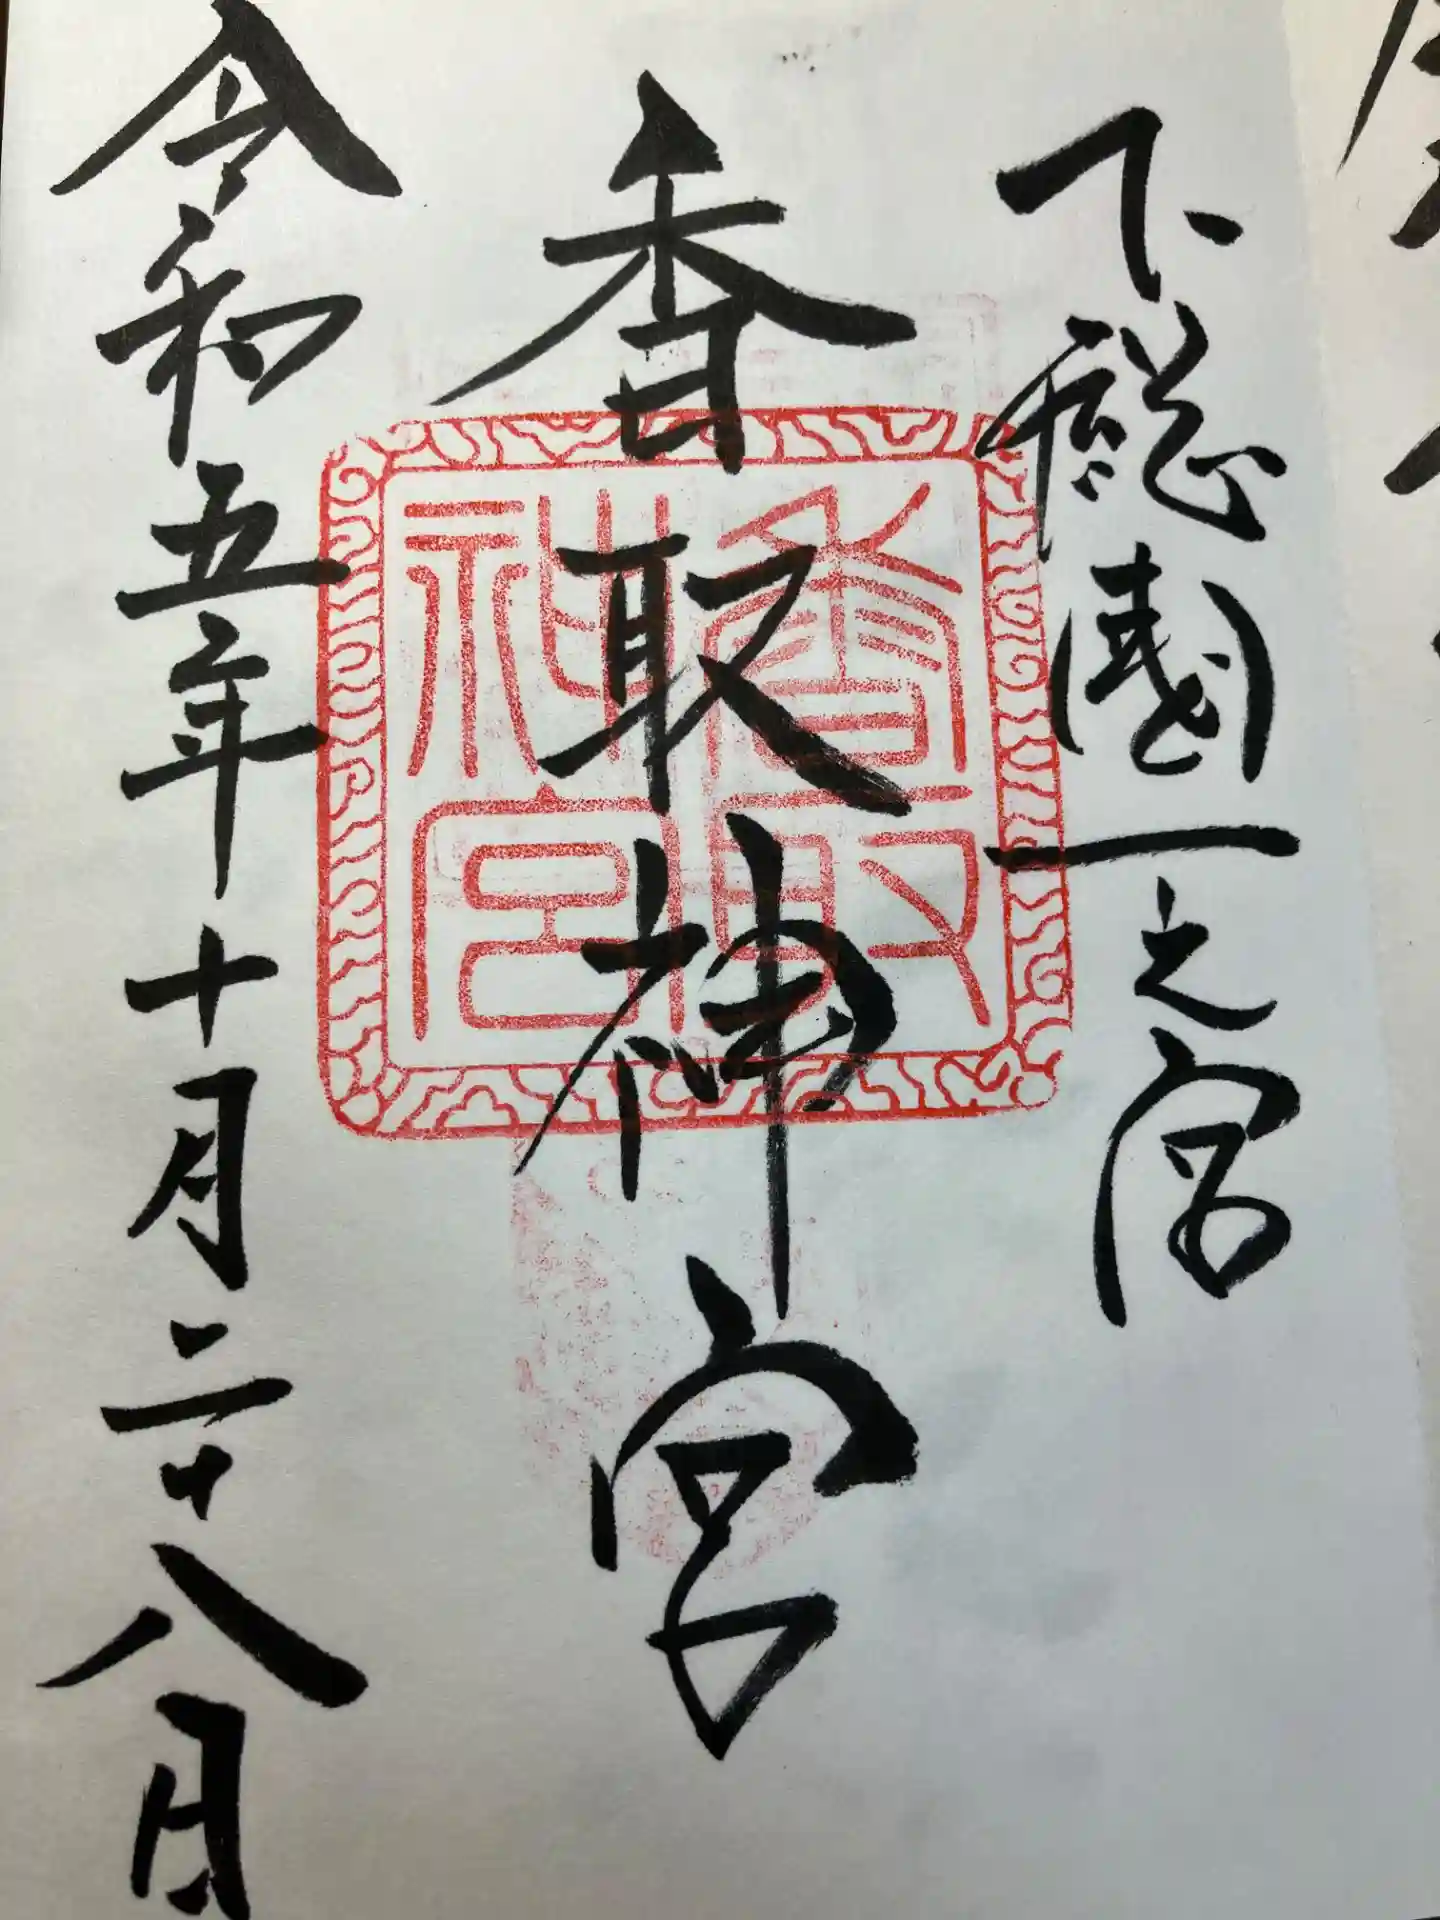 下総國一之宮
香取神宮
香取神宮
令和五年十月二十八日